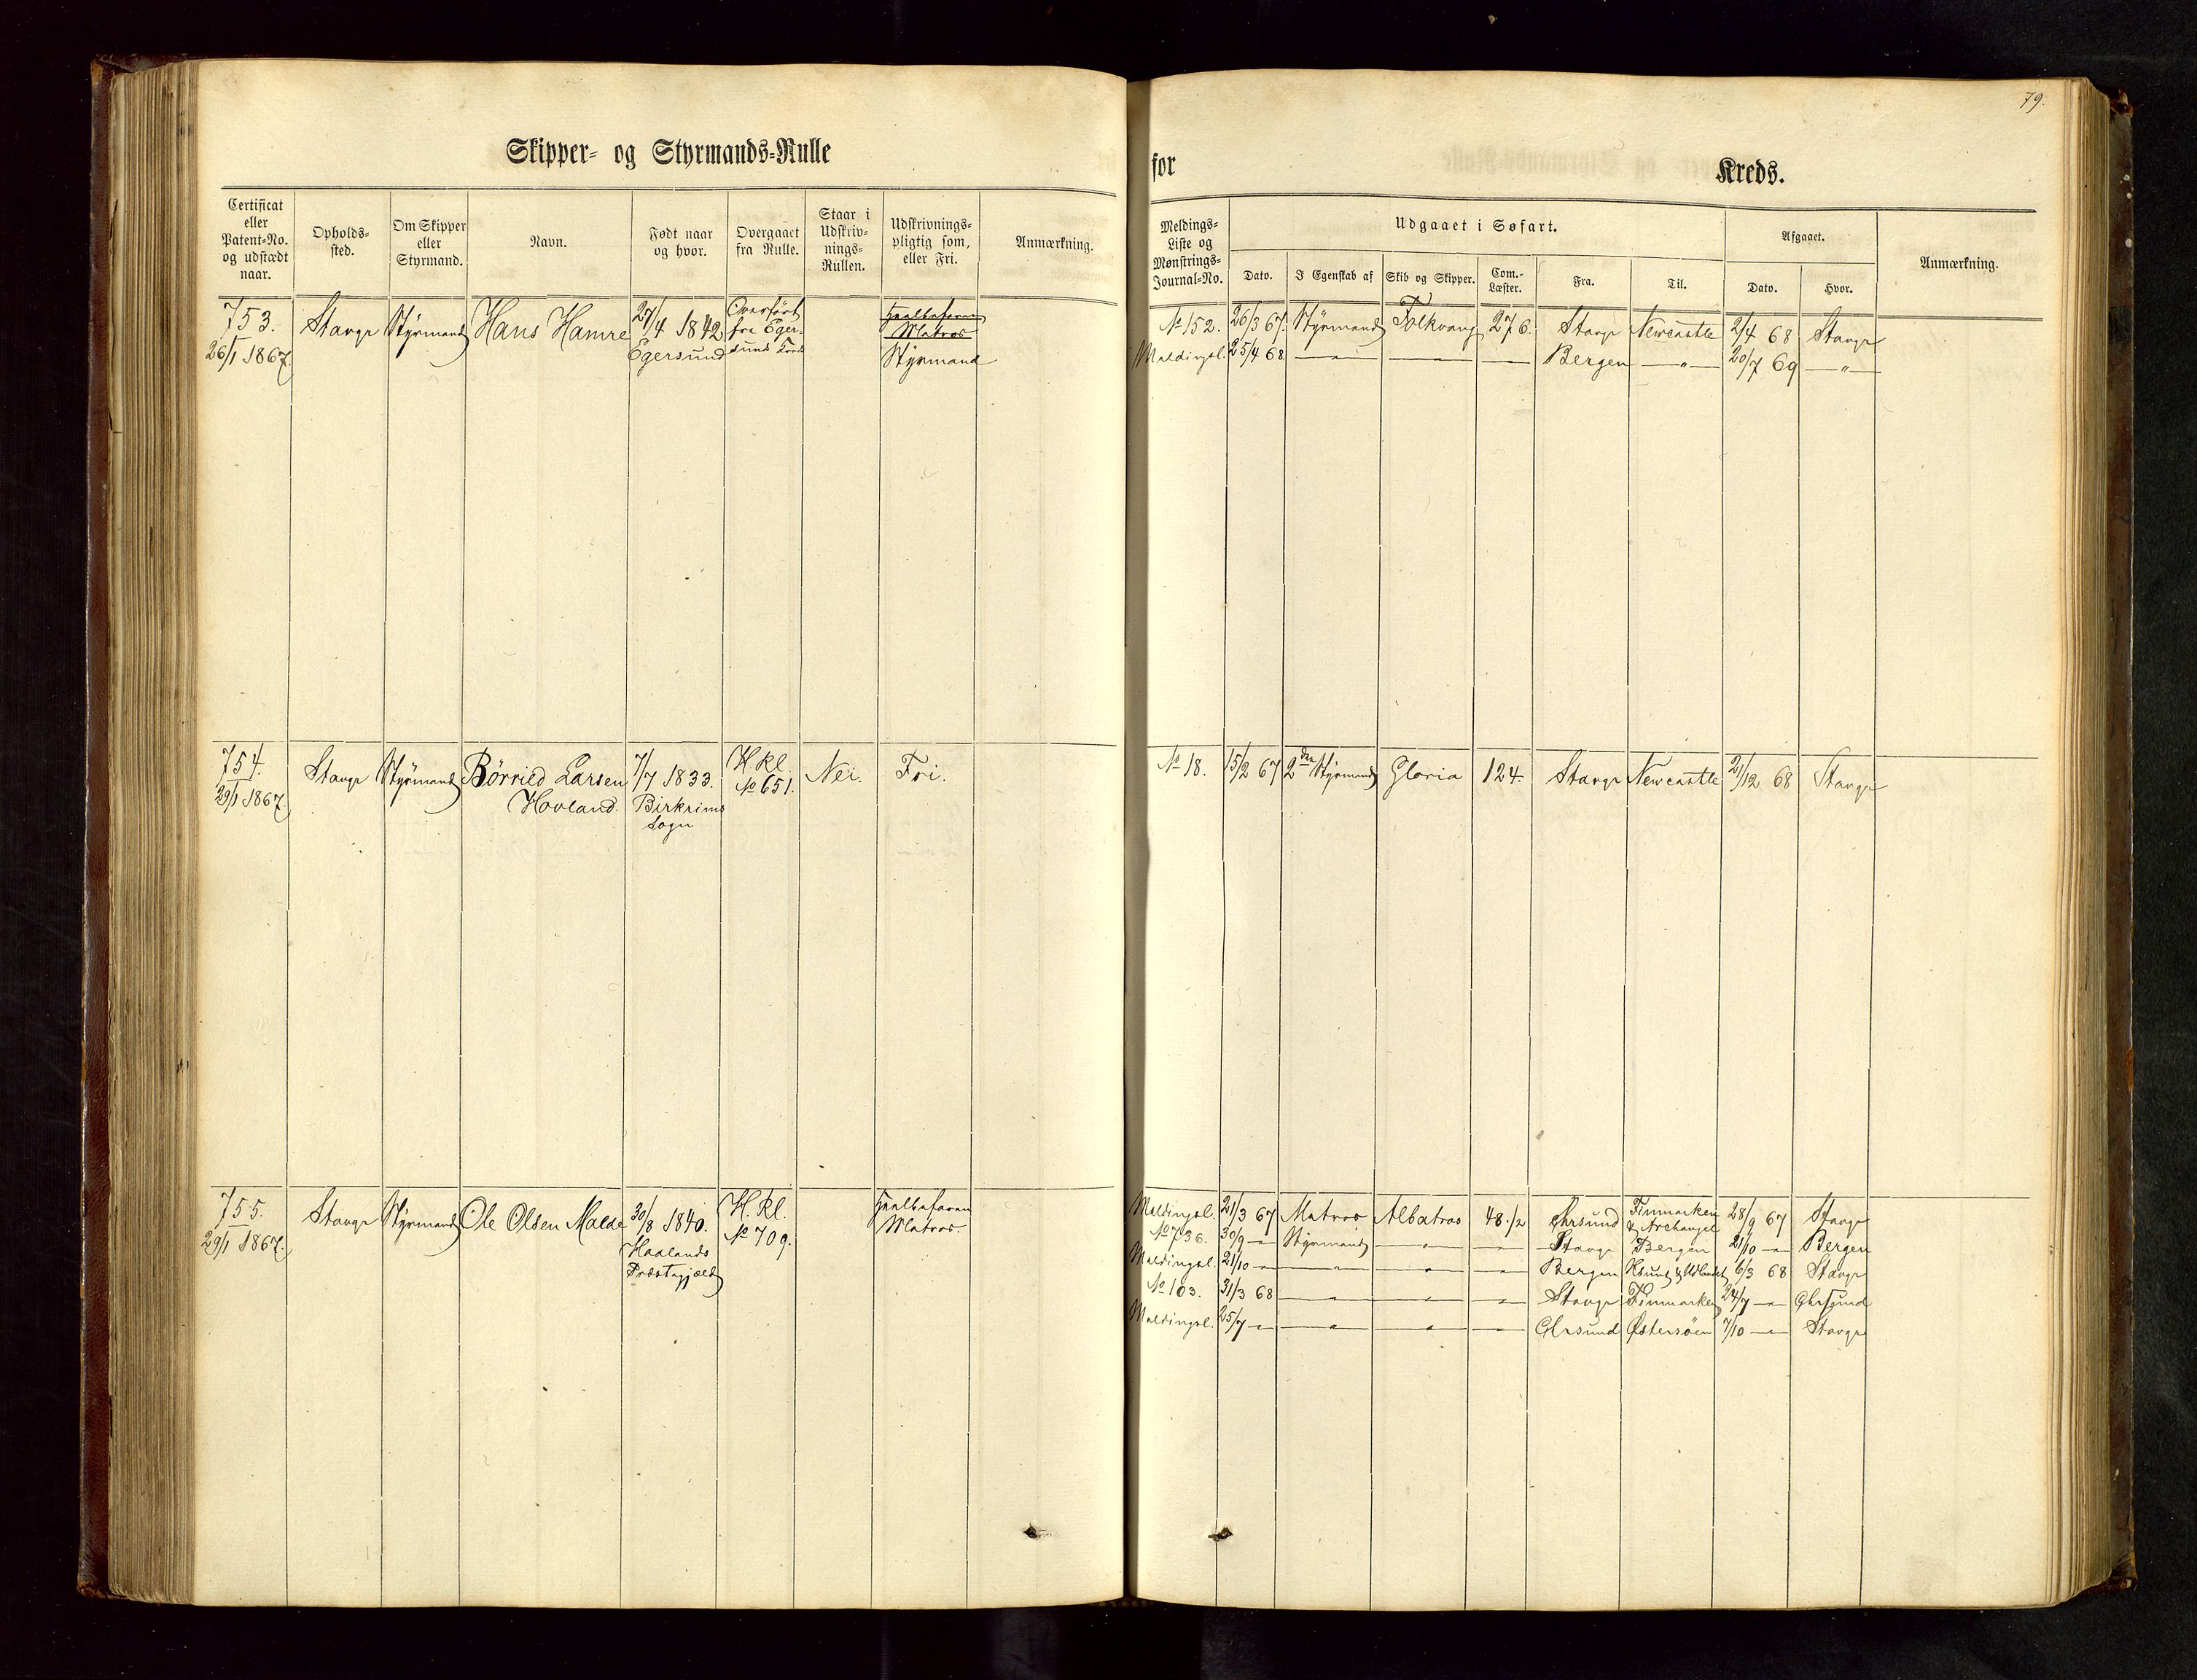 79.
Skipper- og Styrmands-Rulle
for Kreds.
Certificat eller Patent-No. og udstædt naar.
Opholds-sted.
Om Skipper eller Styrmand.
Navn.
Født naar og hvor.
Overgaaet fra Rulle.
Staar i Udskriv-nings-Rullen.
Udskrivnings-pligtig som, eller Fri.
Anmærkning.
Meldings-Liste og Mønstrings-Journal-No.
Udgaaet i Søfart.
Dato.
I Egenskab af
Skib og Skipper.
Com.-Læster.
Fra.
Til.
Afgaaet.
Dato.
Hvor.
Anmærkning.
753. Stavgr Styrmand Hans Hamre 27/4 1842 Overført
26/1 1867. Egersund fra Eger-
sunds Kreds
Matros
Styrmand
No 152. 26/3 67. Styrmand Folkvang 276. Stavgr Newcastle 2/4 68 Stavgr
Meldingsl. 25/4 68 — " — — — Bergen — " — 20/7 69 — " —
754. Stavgr Styrmand Børried Larsen 7/7 1833. H kl Nei. Fri.
29/1 1867. Hovland. Birkrims No 651.
Sogn
No 18. 15/2 67 2den Styrmand Gloria 124. Stavgr Newcastle 21/12 68 Stavgr
755. Stavgr Styrmand Ole Olsen Malde 30/8 1840. H. kl.
29/1 1867. Haalands No 709. Matros.
Præstegjæld
Meldingsl. 21/3 67 Matros Albatros 48 1/2 Ghrsund Finmarken & Archangel 28/9 67 Stavgr
No 736. 30/9 — Styrmand — " — — Stavgr Bergen 21/10 — Bergen
Meldingsl. 21/10 — — " — — " — — Bergen 6/3 68 Stavgr
No 103. 31/3 68 — " — — " — — Stavgr Finmarken 24/7 — Ghrsund
Meldingsl. 25/7 — — " — — " — — Ghrsund Østersøen 7/10 — Stavgr